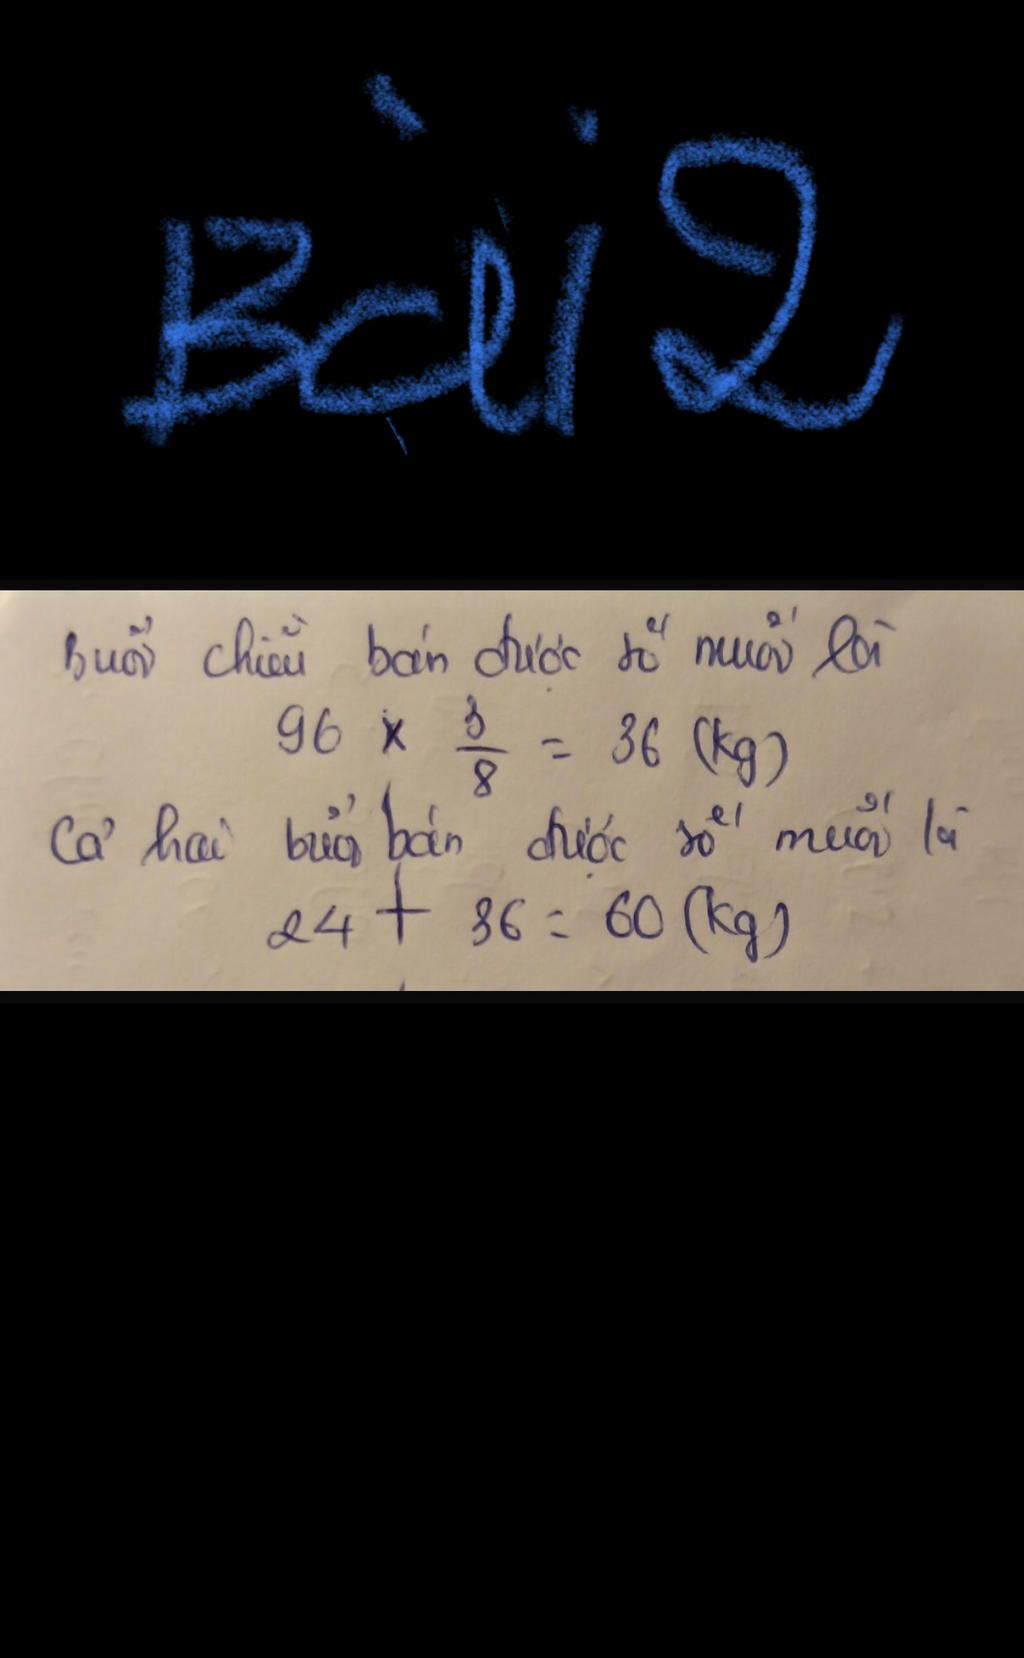 Bài 2
Buổi chiều bán được số muối là
96 x 3/8 = 36 (kg)
Cả hai buổi bán được số muối là
24 + 36 = 60 (kg)